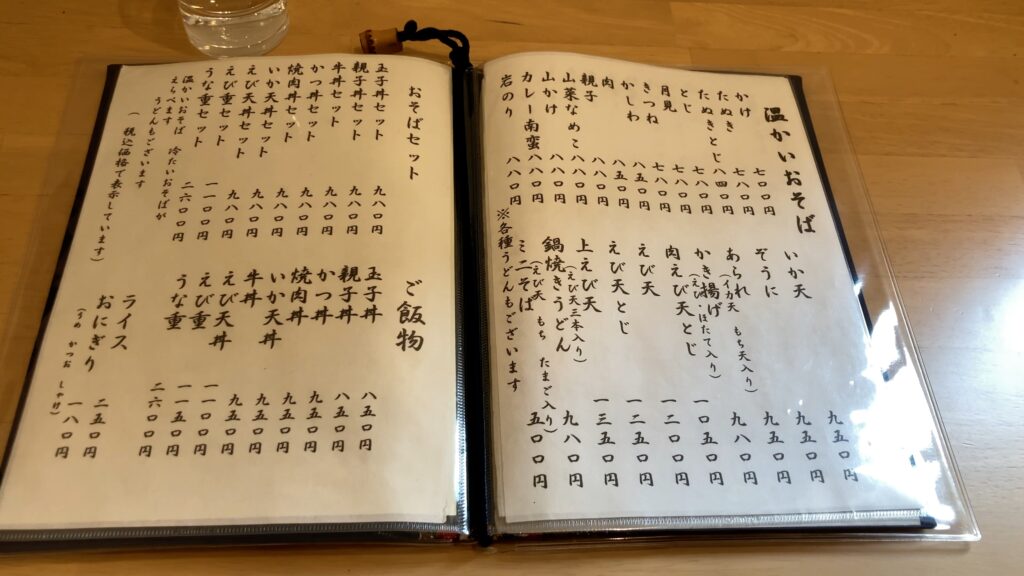 温かいおそば
かけ 七〇〇円
たぬき 七八〇円
たぬきとじ 八四〇円
とじ 七八〇円
月見 七八〇円
きつね 七八〇円
かしわ 八五〇円
肉 八五〇円
親子 八八〇円
山菜なめこ 八八〇円
山かけ 八八〇円
カレー南蛮 八八〇円
岩のり 八八〇円
いか天 九五〇円
ぞうに 九五〇円
あられ 九五〇円
(イカ天 もち天入り)
かき揚げ 九八〇円
(えび・ほたて入り)
肉えび天とじ 一〇五〇円
えび天 一二〇〇円
えび天とじ 一二五〇円
上えび天 一三五〇円
(えび天三本入り)
鍋焼きうどん 九八〇円
(えび天 もち たまご入り)
ミニそば 五〇〇円
※各種うどんもございます
おそばセット
玉子丼セット 九八〇円
親子丼セット 九八〇円
牛丼セット 九八〇円
かつ丼セット 九八〇円
焼肉丼セット 九八〇円
いか天丼セット 九八〇円
えび天丼セット 九八〇円
えび重セット 一一〇〇円
うな重セット 二六〇〇円
温かいおそば 冷たいおそばが
えらべます
うどんもございます
(税込価格で表示しています)
ご飯物
玉子丼 八五〇円
親子丼 八五〇円
かつ丼 九五〇円
焼肉丼 九五〇円
いか天丼 九五〇円
牛丼 九五〇円
えび天丼 一一〇〇円
えび重 一一五〇円
うな重 二六〇〇円
ライス 二五〇円
おにぎり 一八〇円
(うめ かつお しゃけ)